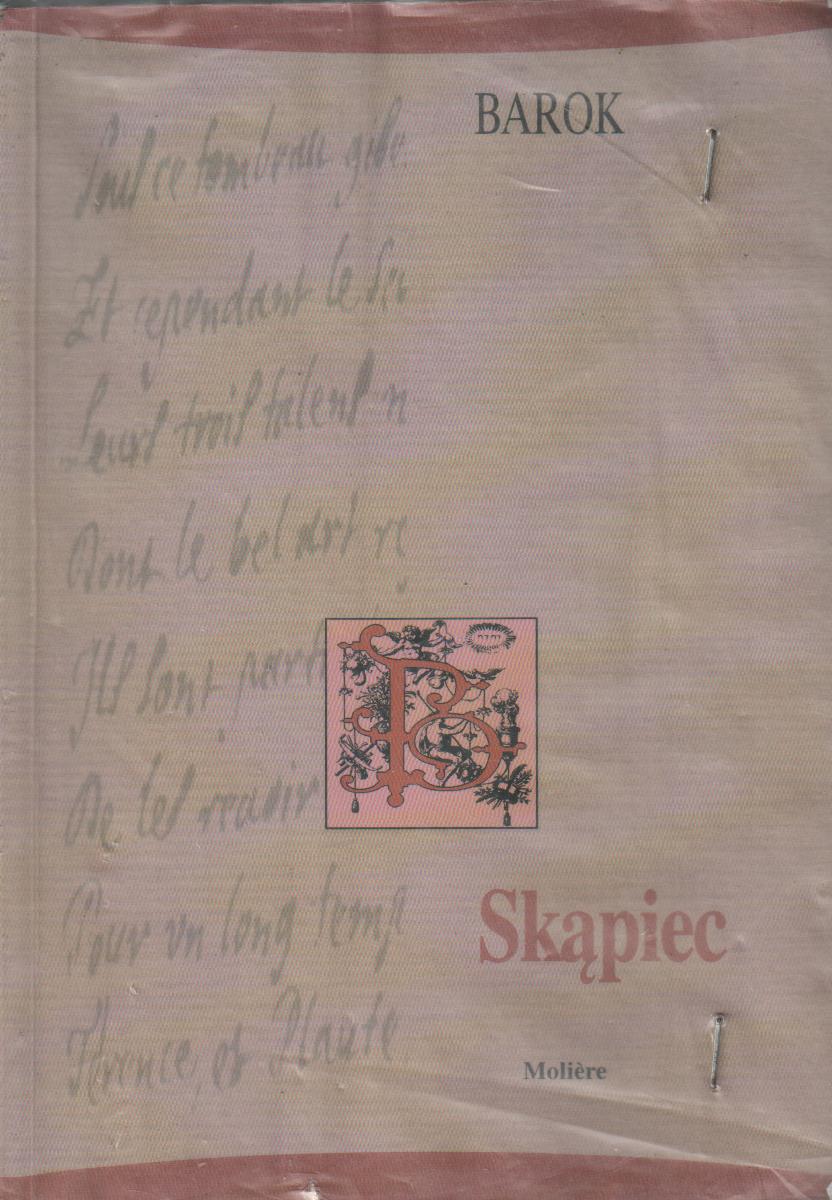 BAROK
Sous ce tombeau gise
Et cependant le
Leurs trois talens n
Dont le bel art
Ils sont parti
De les revoir
Pour vn long temp
Terence, et Plaute
Skąpiec
Molière